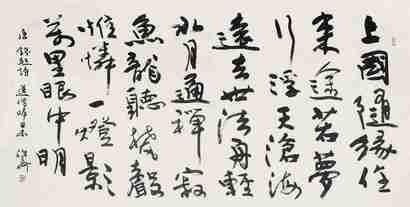 上國隨緣住
來途若夢
行浮天滄海
遠去世法舟輕
水月通禪寂
魚龍聽梵聲
惟憐一燈影
萬里眼中明
唐錢起詩送僧歸日本